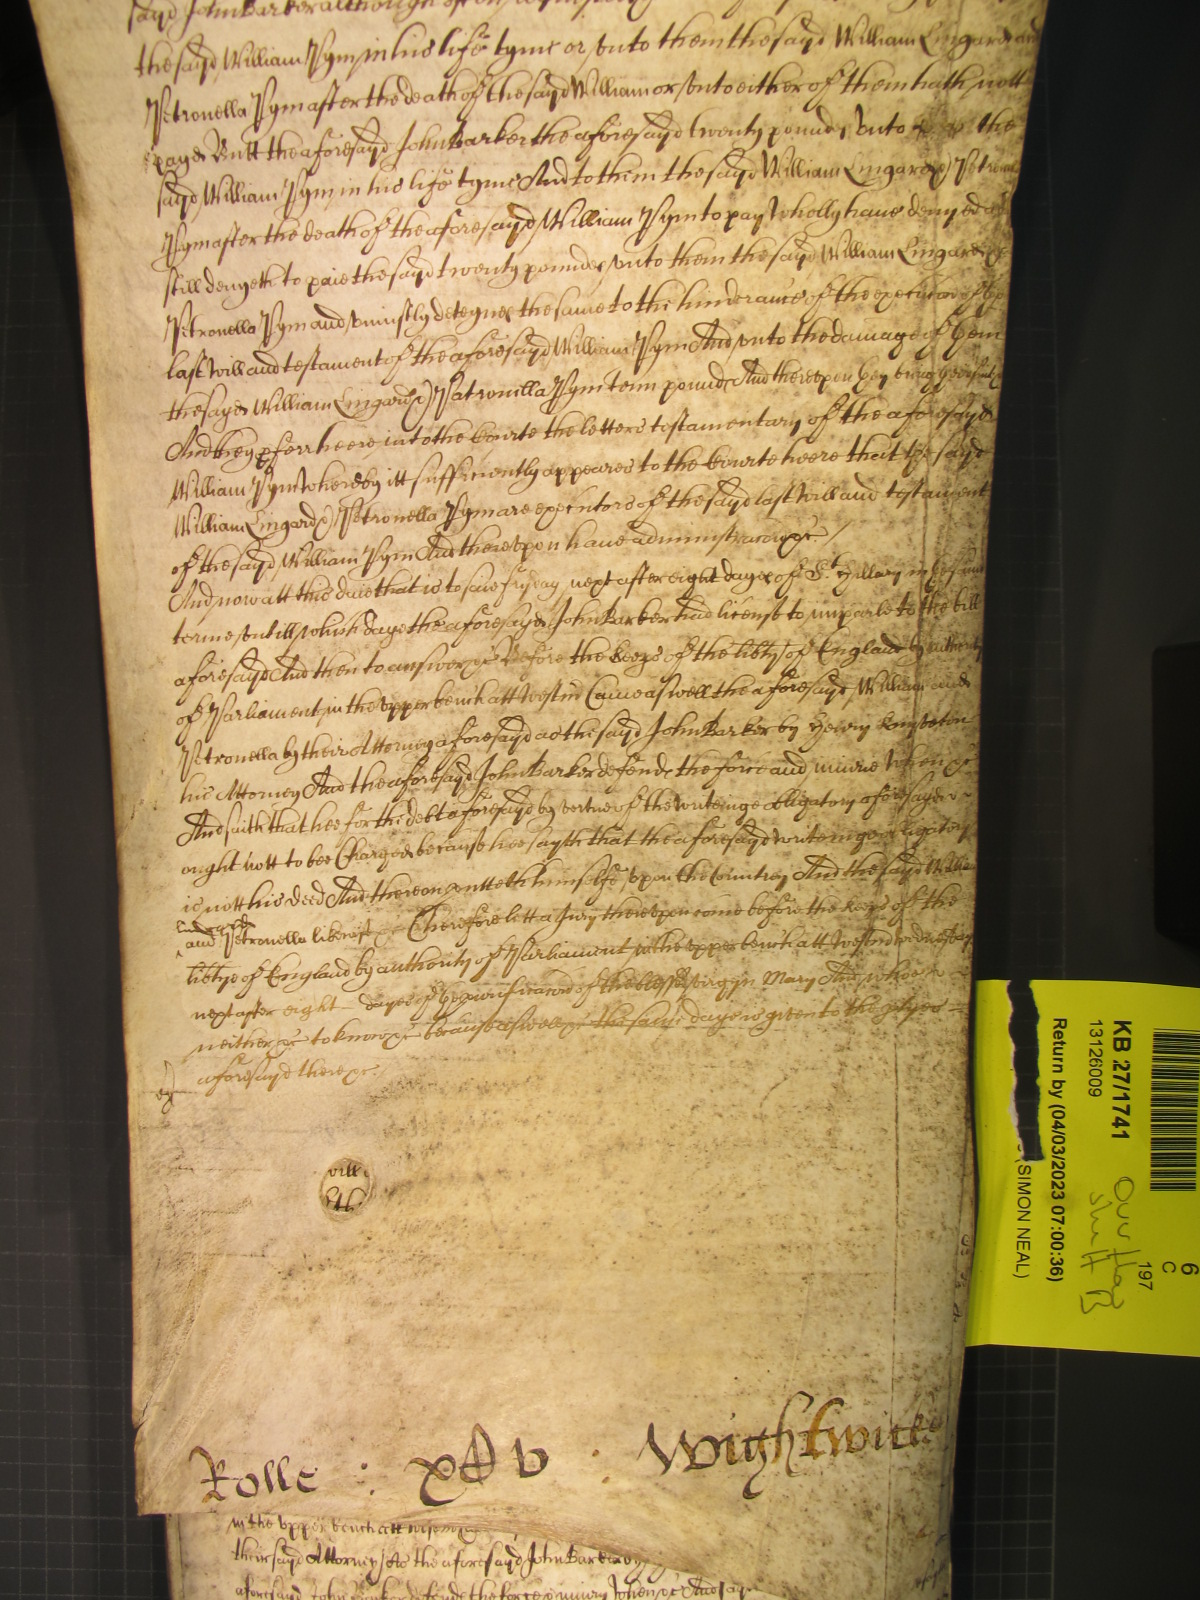 sayd John Barker although often
the sayd William Pym in his life tyme or unto them the sayd William Lingard and
Petronella Pym after the death of the sayd William or unto either of them hath nott
payed Butt the aforesayd John Barker the aforesayd twenty pounds unto the
sayd William Pym in his life tyme And to them the sayd William Lingard & Petronella
Pym after the death of the aforesayd William Pym to pay wholly have denyed and
still denyeth to paie the sayd twenty poundes unto them the sayd William Lingard &
Petronella Pym and uniustly deteynes the same to the hinderance of the execucion of the
last will and testament of the aforesayd William Pym And unto the damage of them
the sayd William Lingard & Petronella Pym tenn pounds And thereupon they bring
And they pferr heere into the Courte the letters testamentary of the aforesayd
William Pym whereby itt sufficiently appeares to the Courte heere that the sayd
William Lingard & Petronella Pym are executors of the sayd last will and testament
of the sayd William Pym And thereupon have administracion &c /
And now att this daie that is to saie fryday next after eight dayes of St Hillary in this same
terme untill which daye the aforesayd John Barker had license to imparle to the bill
aforesayd And then to answer &c Before the keeps of the libtye of England by authority
of Parliament in the upper bench att Westm Came aswell the aforesayd William and
Petronella by their Attorney aforesayd as the sayd John Barker by Henry
his Attorney And the aforesayd John Barker defends the force and iniurie when &c
And saith that hee for the debt aforesayd by vertue of the writeinge obligatory aforesayd
ought nott to bee Charged because hee sayth that the aforesayd writeinge obligatory
is nott his deed And thereon putteth himselfe upon the Country And the sayd William
Lingard
and Petronella likewise &c Therefore lett a Jury thereupon come before the keeps of the
libtye of England by authority of Parliament in the upper bench att Westm on wednesday
next after eight dayes of the purificacon of the blessed virgyn Mary And whoe
neither &c to know &c because aswell &c the same daye is given to the ptyes
aforesayd there &c
vill
Rolle : xlv . Wightwicke
in the upper bench att Westm &c
their sayd Attorney As the aforesayd John Barker by
aforesayd John Barker defends the force & iniury when &c And say
KB 27/1741
13126009
Return by (04/03/2023 07:00:36)
(SIMON NEAL)
6
C
197